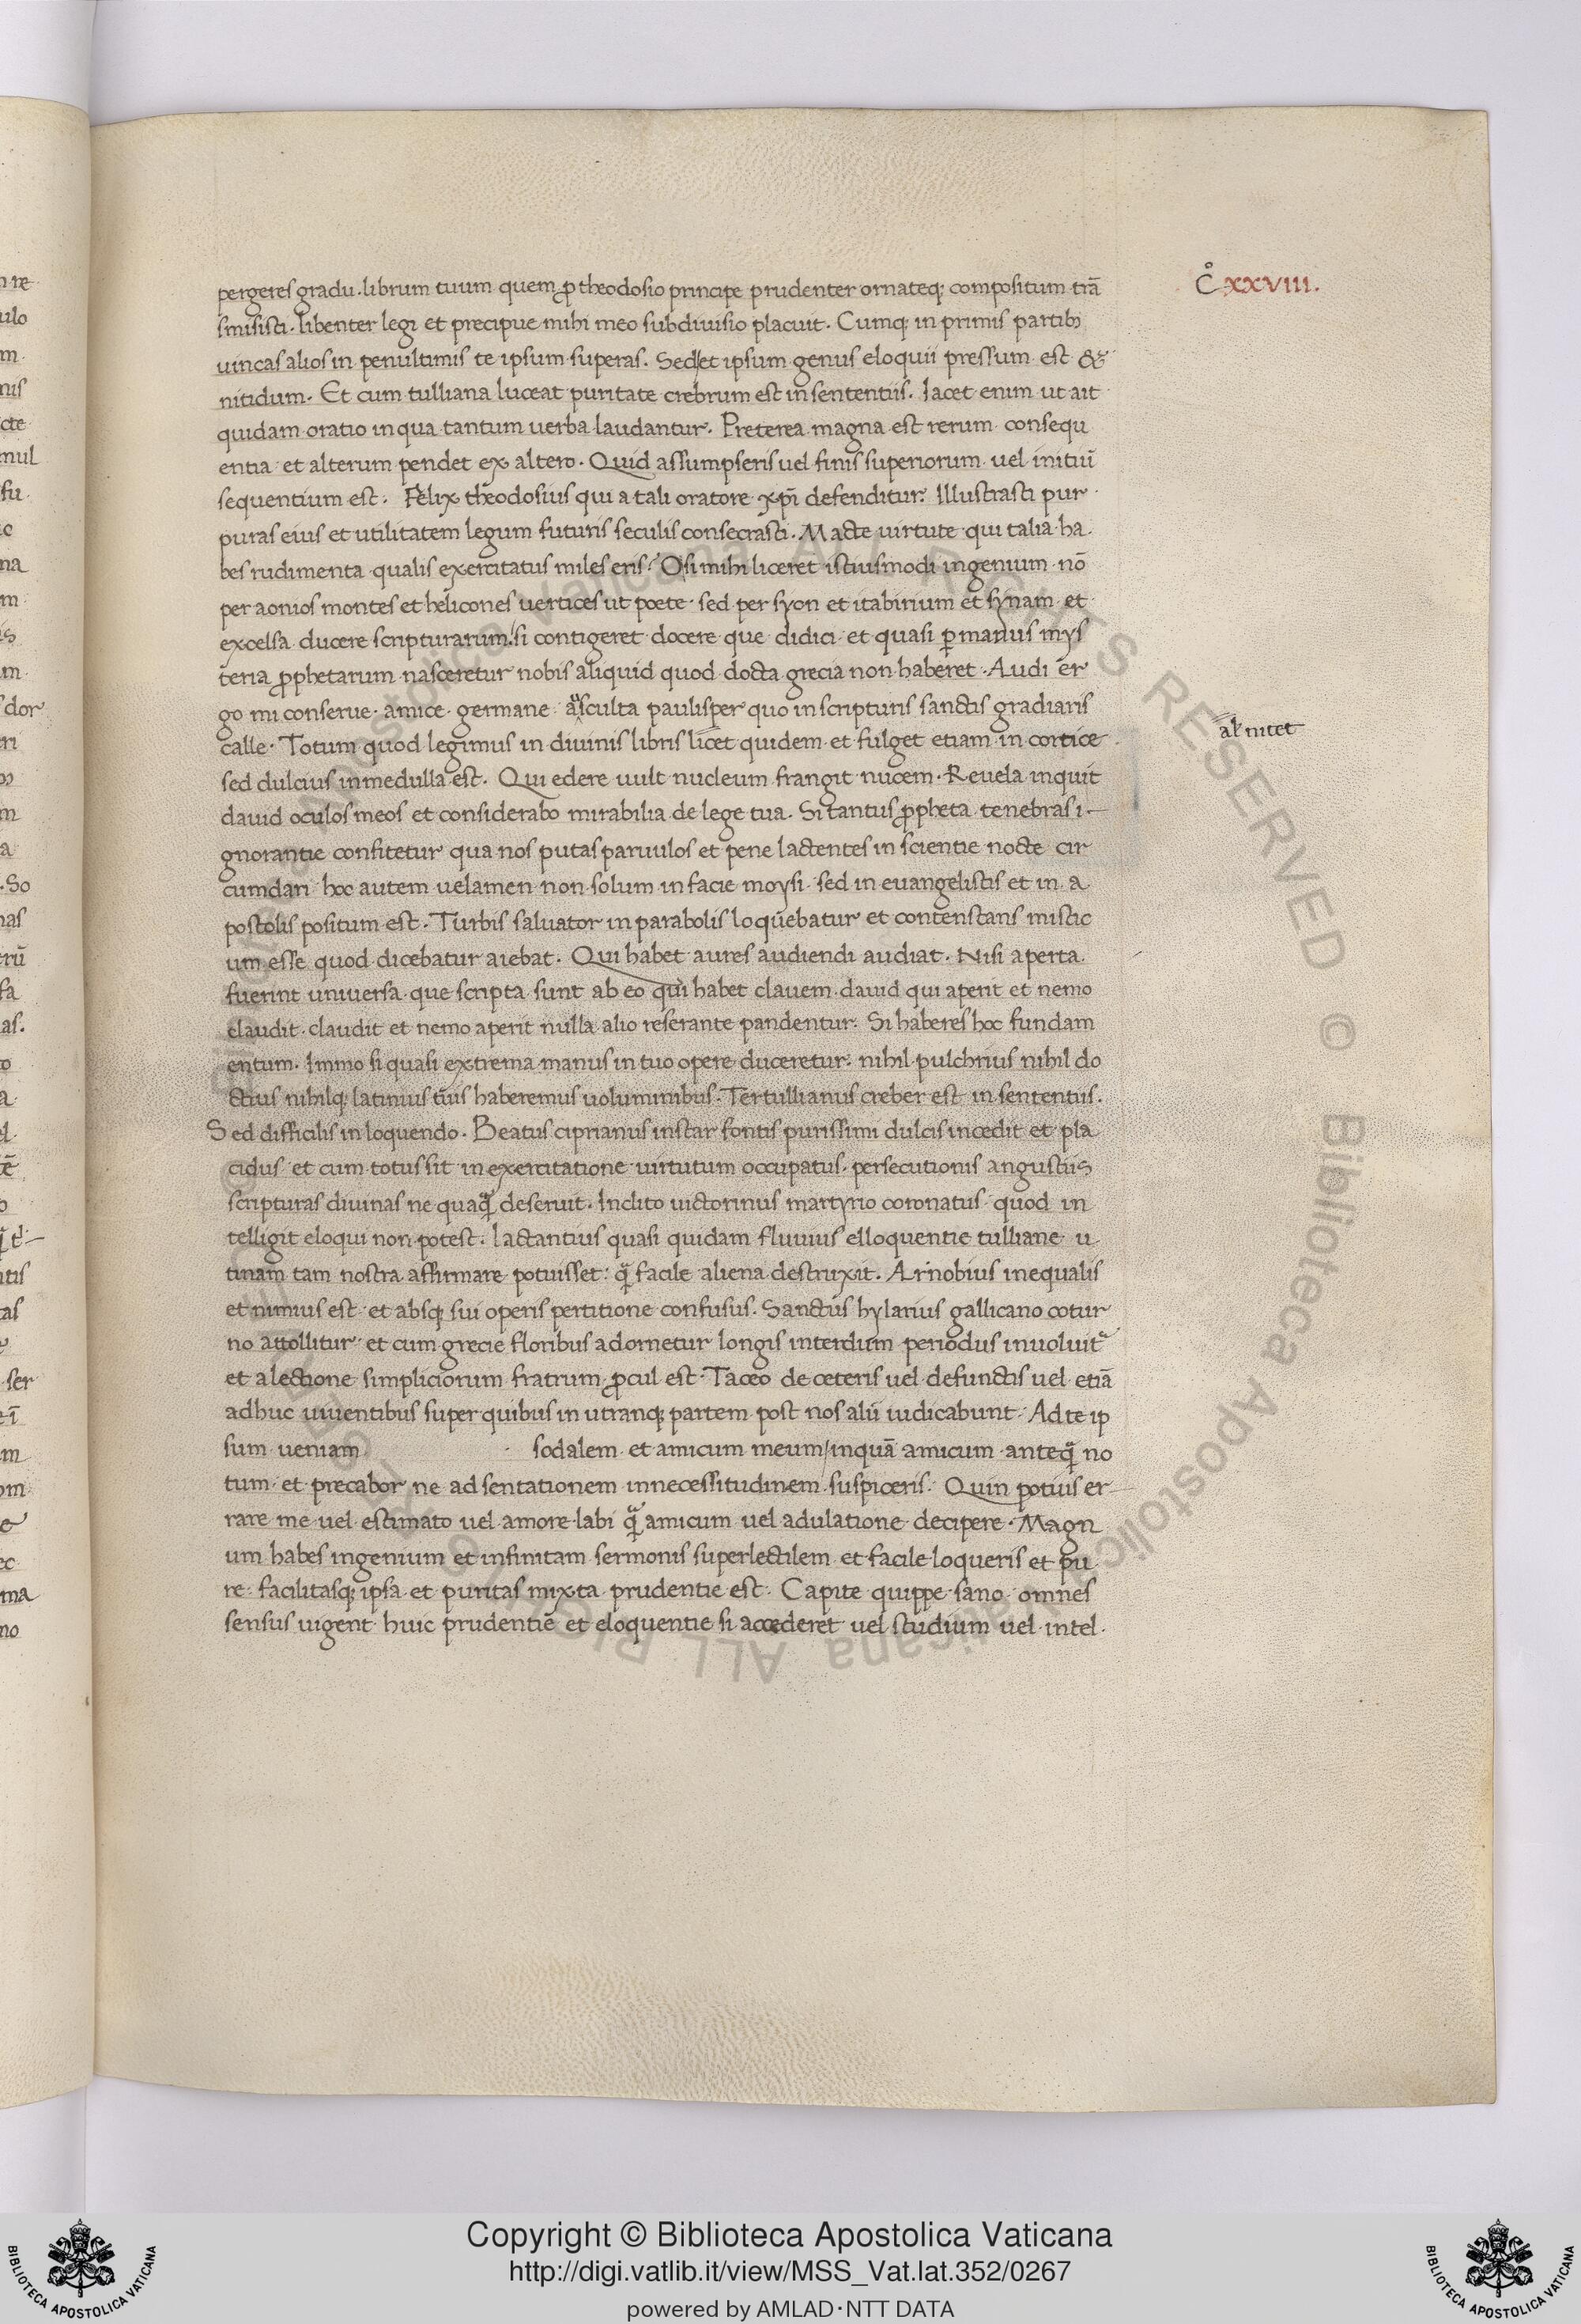 pergeres gradu. librum tuum quem ꝓ theodosio principe prudenter ornateq; compositum trā
smisisti. libenter legi et precipue mihi meo subdiuisio placuit. Cumq; in primis partib;
uincas alios in penultimis te ipsum superas. Sed et ipsum genus eloquii pressum est &
nitidum. Et cum tulliana luceat puritate crebrum est in sententiis. Iacet enim ut ait
quidam oratio in qua tantum uerba laudantur. Preterea magna est rerum consequ
entia et alterum pendet ex altero. Quid assumpseris uel finis superiorum uel initiū
sequentium est. Felix theodosius qui a tali oratore xp̄i defenditur. Illustrasti pur
puras eius et utilitatem legum futuris seculis consecrasti. Macte uirtute qui talia ha
bes rudimenta qualis exercitatus miles eris. O si mihi liceret istiusmodi ingenium nō
per aonios montes et helicones uertices ut poete sed per syon et itabirium et synam et
excelsa ducere scripturarum. si contigeret docere que didici et quasi ꝑ manus mys
teria ꝓphetarum nasceretur nobis aliquid quod docta grecia non haberet. Audi er
go mi conserue. amice. germane auscult​a paulisper quo in scripturis sanctis gradiaris
calle. Totum quod legimus in diuinis libris licet quidem et fulget etiam in cortice
sed dulcius in medulla est. Qui edere uult nucleum frangit nucem. Reuela inquit
dauid oculos meos et considerabo mirabilia de lege tua. Si tantus ꝓpheta tenebras i
gnorantie confitetur qua nos putas paruulos et pene lactentes inscientie nocte cir
cumdari hoc autem uelamen non solum in facie moysi sed in euangelistis et in a
postolis positum est. Turbis saluator in parabolis loquebatur et contenstans mistic
um esse quod dicebatur aiebat. Qui habet aures audiendi audiat. Nisi aperta
fuerint uniuersa que scripta sunt ab eo qui habet clauem dauid qui aperit et nemo
claudit. claudit et nemo aperit nulla alio reserante pandentur. Si haberes hoc fundam
entum. Immo si quasi extrema manus in tuo opere duceretur. nihil pulchrius nihil do
ctius nihilq; latinius tuis haberemus uoluminibus. Tertullianus creber est in sententiis.
Sed difficilis in loquendo. Beatus ciprianus instar fontis purissimi dulcis incedit et pla
cidus et cum totus sit in exercitatione uirtutum occupatus. persecutionis angustiis
scripturas diuinas ne quaꝗ̃ deseruit. Inclito uictorinus martyrio coronatus quod in
telligit eloqui non potest. lactantius quasi quidam fluuius elloquentie tulliane u
tinam tam nostra affirmare potuisset. ꝗ̃ facile aliena destruxit. Arnobius inequalis
et nimius est et absq; sui operis pertitione confusus. Sanctus hylarius gallicano cotur
no attollitur et cum grecie floribus adornetur longis interdum periodus inuoluit᷑
et a lectione simpliciorum fratrum ꝓcul est. Taceo de ceteris uel defunctis uel etiā
adhuc uiuentibus super quibus in utranq; partem post nos alii iudicabunt. Ad te ip
sum ueniam sodalem et amicum meum, inquā amicum anteꝗ̃ no
tum et precabor ne adsentationem in necessitudinem suspiceris. Quin potius er
rare me uel estimato uel amore labi ꝗ̃ amicum uel adulatione decipere. Magn
um habes ingenium et infinitam sermonis superlectilem et facile loqueris et pu
re. facilitasq; ipsa et puritas mixta prudentie est. Capite quippe sano omnes
sensus uigent huic prudentie et eloquentie si accederet uel studium uel intel.
C̊ XXVIII.
al' nitet
Copyright © Biblioteca Apostolica Vaticana
http://digi.vatlib.it/view/MSS_Vat.lat.352/0267
powered by AMLAD·NTT DATA
BIBLIOTECA APOSTOLICA VATICANA
BIBLIOTECA APOSTOLICA VATICANA